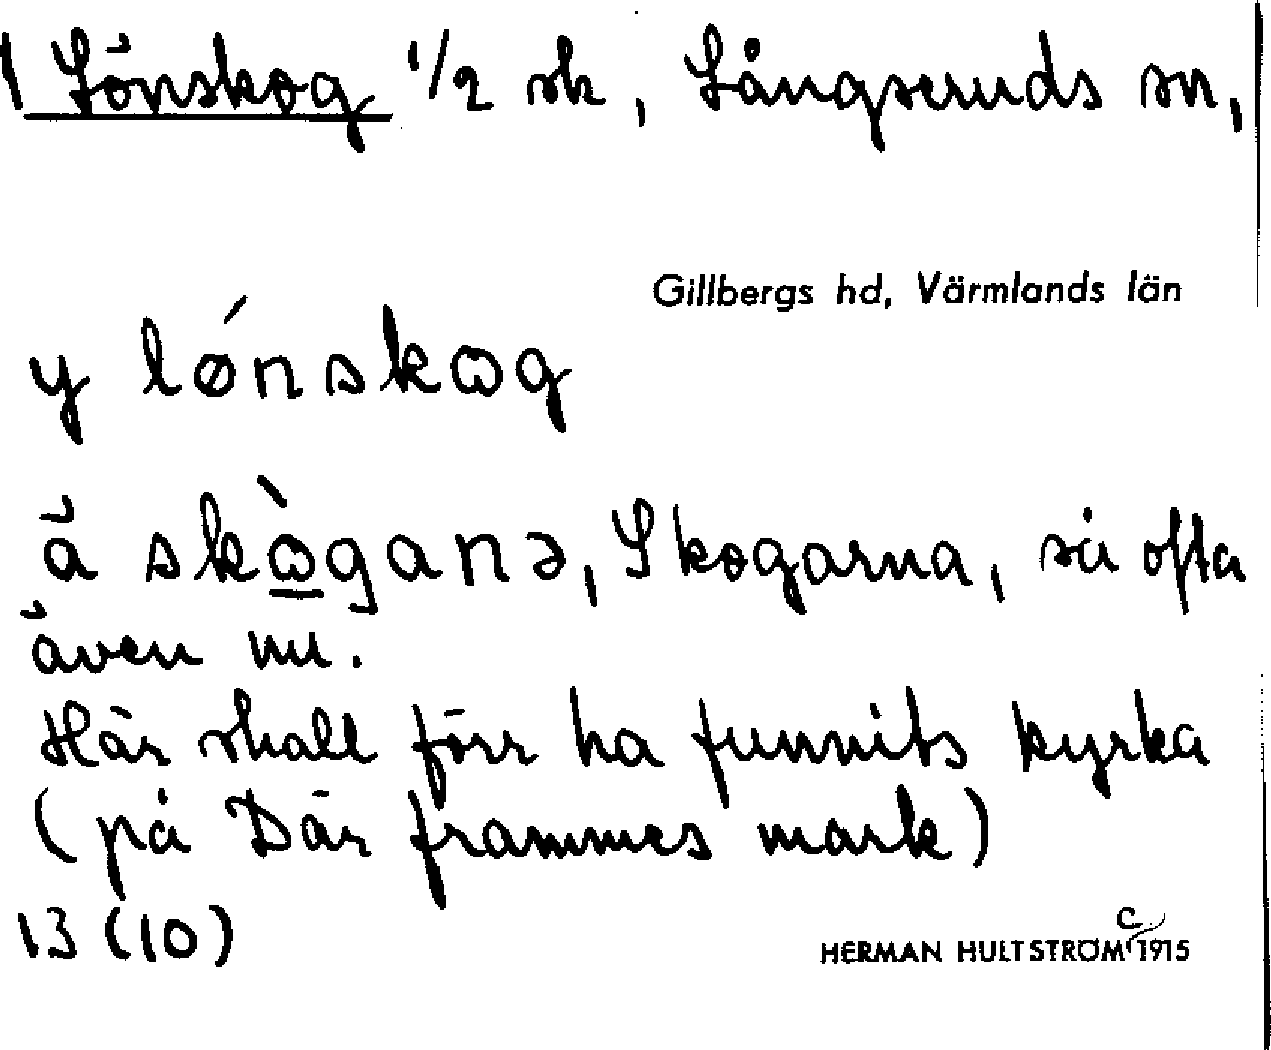 1 Lönskog 1/2 sk, Långseruds sn,
Gillbergs hd, Värmlands län
y lǿnskɷg
å skɷ̀ganə, Skogarna, så ofta
även nu.
Här skall förr ha funnits kyrka
(på Där frammes mark)
13 (10)
HERMAN HULTSTRÖM c 1915